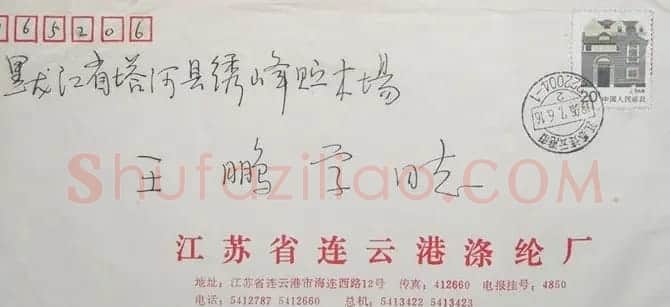 165206
黑龙江省塔河县绣峰贮木场
王鹏字同志
20
中国人民邮政
Shufaziliao.COM.
江苏省连云港涤纶厂
地址：江苏省连云港市海连西路12号 传真：412660 电报挂号：4850
电话：5412787 5412660 总机：5413422 5413423